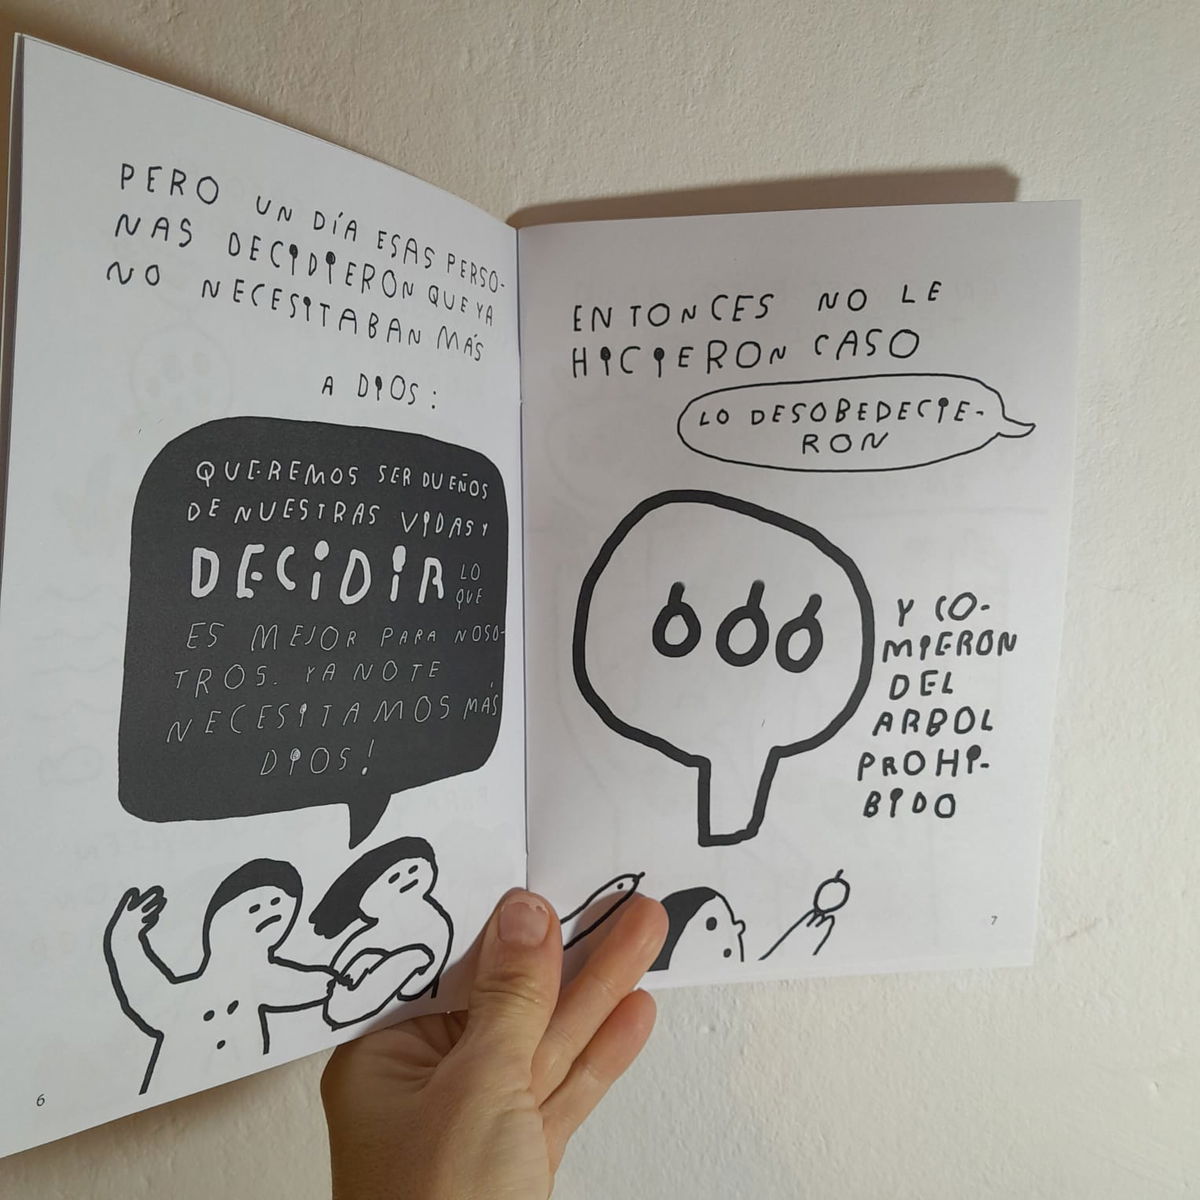 PERO UN DÍA ESAS PERSO-
NAS DECIDIERON QUE YA
NO NECESITABAN MÁS
A DIOS:
QUEREMOS SER DUEÑOS
DE NUESTRAS VIDAS Y
DECIDIR LO
QUE
ES MEJOR PARA NOSO-
TROS. YA NO TE
NECESITAMOS MÁS
DIOS!
6
ENTONCES NO LE
HICIERON CASO
LO DESOBEDECIE-
RON
Y CO-
MIERON
DEL
ARBOL
PROHI-
BIDO
7